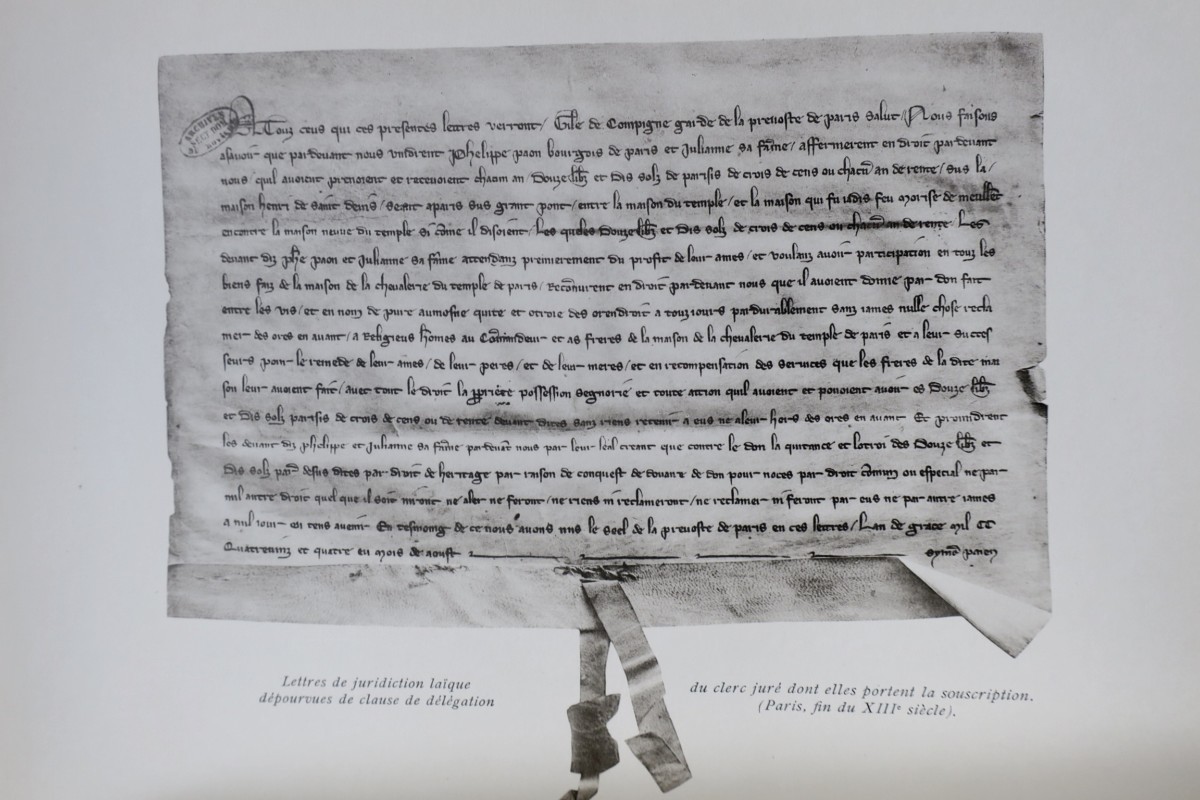 A Touz ceus qui ces presentes lettres verront / Gile de Compigne garde de la prevoste de paris salut / Nous faisons
asavoir que pardevant nous vindrent Phelippe paon bourgois de paris et Julianne sa fame / affermerent en droit pardevant
nous quil avoient prenoient et recevoient chacun an / Douze livr et Dis solz de parisis de crois de cens ou chacun an de rente / sus la /
maison henri de saint denis / seant a paris sus grant pont / entre la maison du temple / et la maison qui fu iadis feu Morise de
encontre la maison neuve du temple si come il disoient / les queles Douze livr et Dis solz de crois de cens ou chacun an de rente Les
devant diz phe paon et Julianne sa fame attendanz premierement du profit de leur ames / et voulanz avoir participation en touz les
biens faiz de la maison de la chevalerie du temple de paris / Reconurent en droit pardevant nous que il avoient donne par don fait
entre les vis / et en nom de pure aumosne quite et otroie des orendroit a touziours pardurablement sanz iames nulle chose recla
mer des ores en avant / a Religieus homes au Comandeur et as freres de la maison de la chevalerie du temple de paris et a leur succes
seurs pour le remede de leur ames / de leur peres / et de leur meres / et en recompensation des services que les freres de la dite mai
son leur avoient fait / avec tout le droit la propriete possession segnorie et toute action quil avoient et povoient avoir es Douze livr
et Dis solz parisis de crois de cens ou de rente devant dites sanz riens retenir a eus ne a leur hoirs des ores en avant Et promidrent
les devant diz phelippe et Julianne sa fame pardevant nous par leur leal creant que contre le don la quitance et lotroi des Douze livr et
Dis solz par desus dites par droit de heritage par raison de conquest de douaire de don pour noces par droit commun ou especial ne par
nul autre droit quel que il soit niront ne aler ne feront / ne riens ni reclameront / ne reclamer ni feront par eus ne par autre iames
a nul iour en tens avenir En tesmoing de ce nous avons mis le seel de la prevoste de paris en ces lettres / Lan de grace Mil CC
Quatrevinz et quatre eu Mois de aoust
Lettres de juridiction laïque
dépourvues de clause de délégation
du clerc juré dont elles portent la souscription.
(Paris, fin du XIIIe siècle).